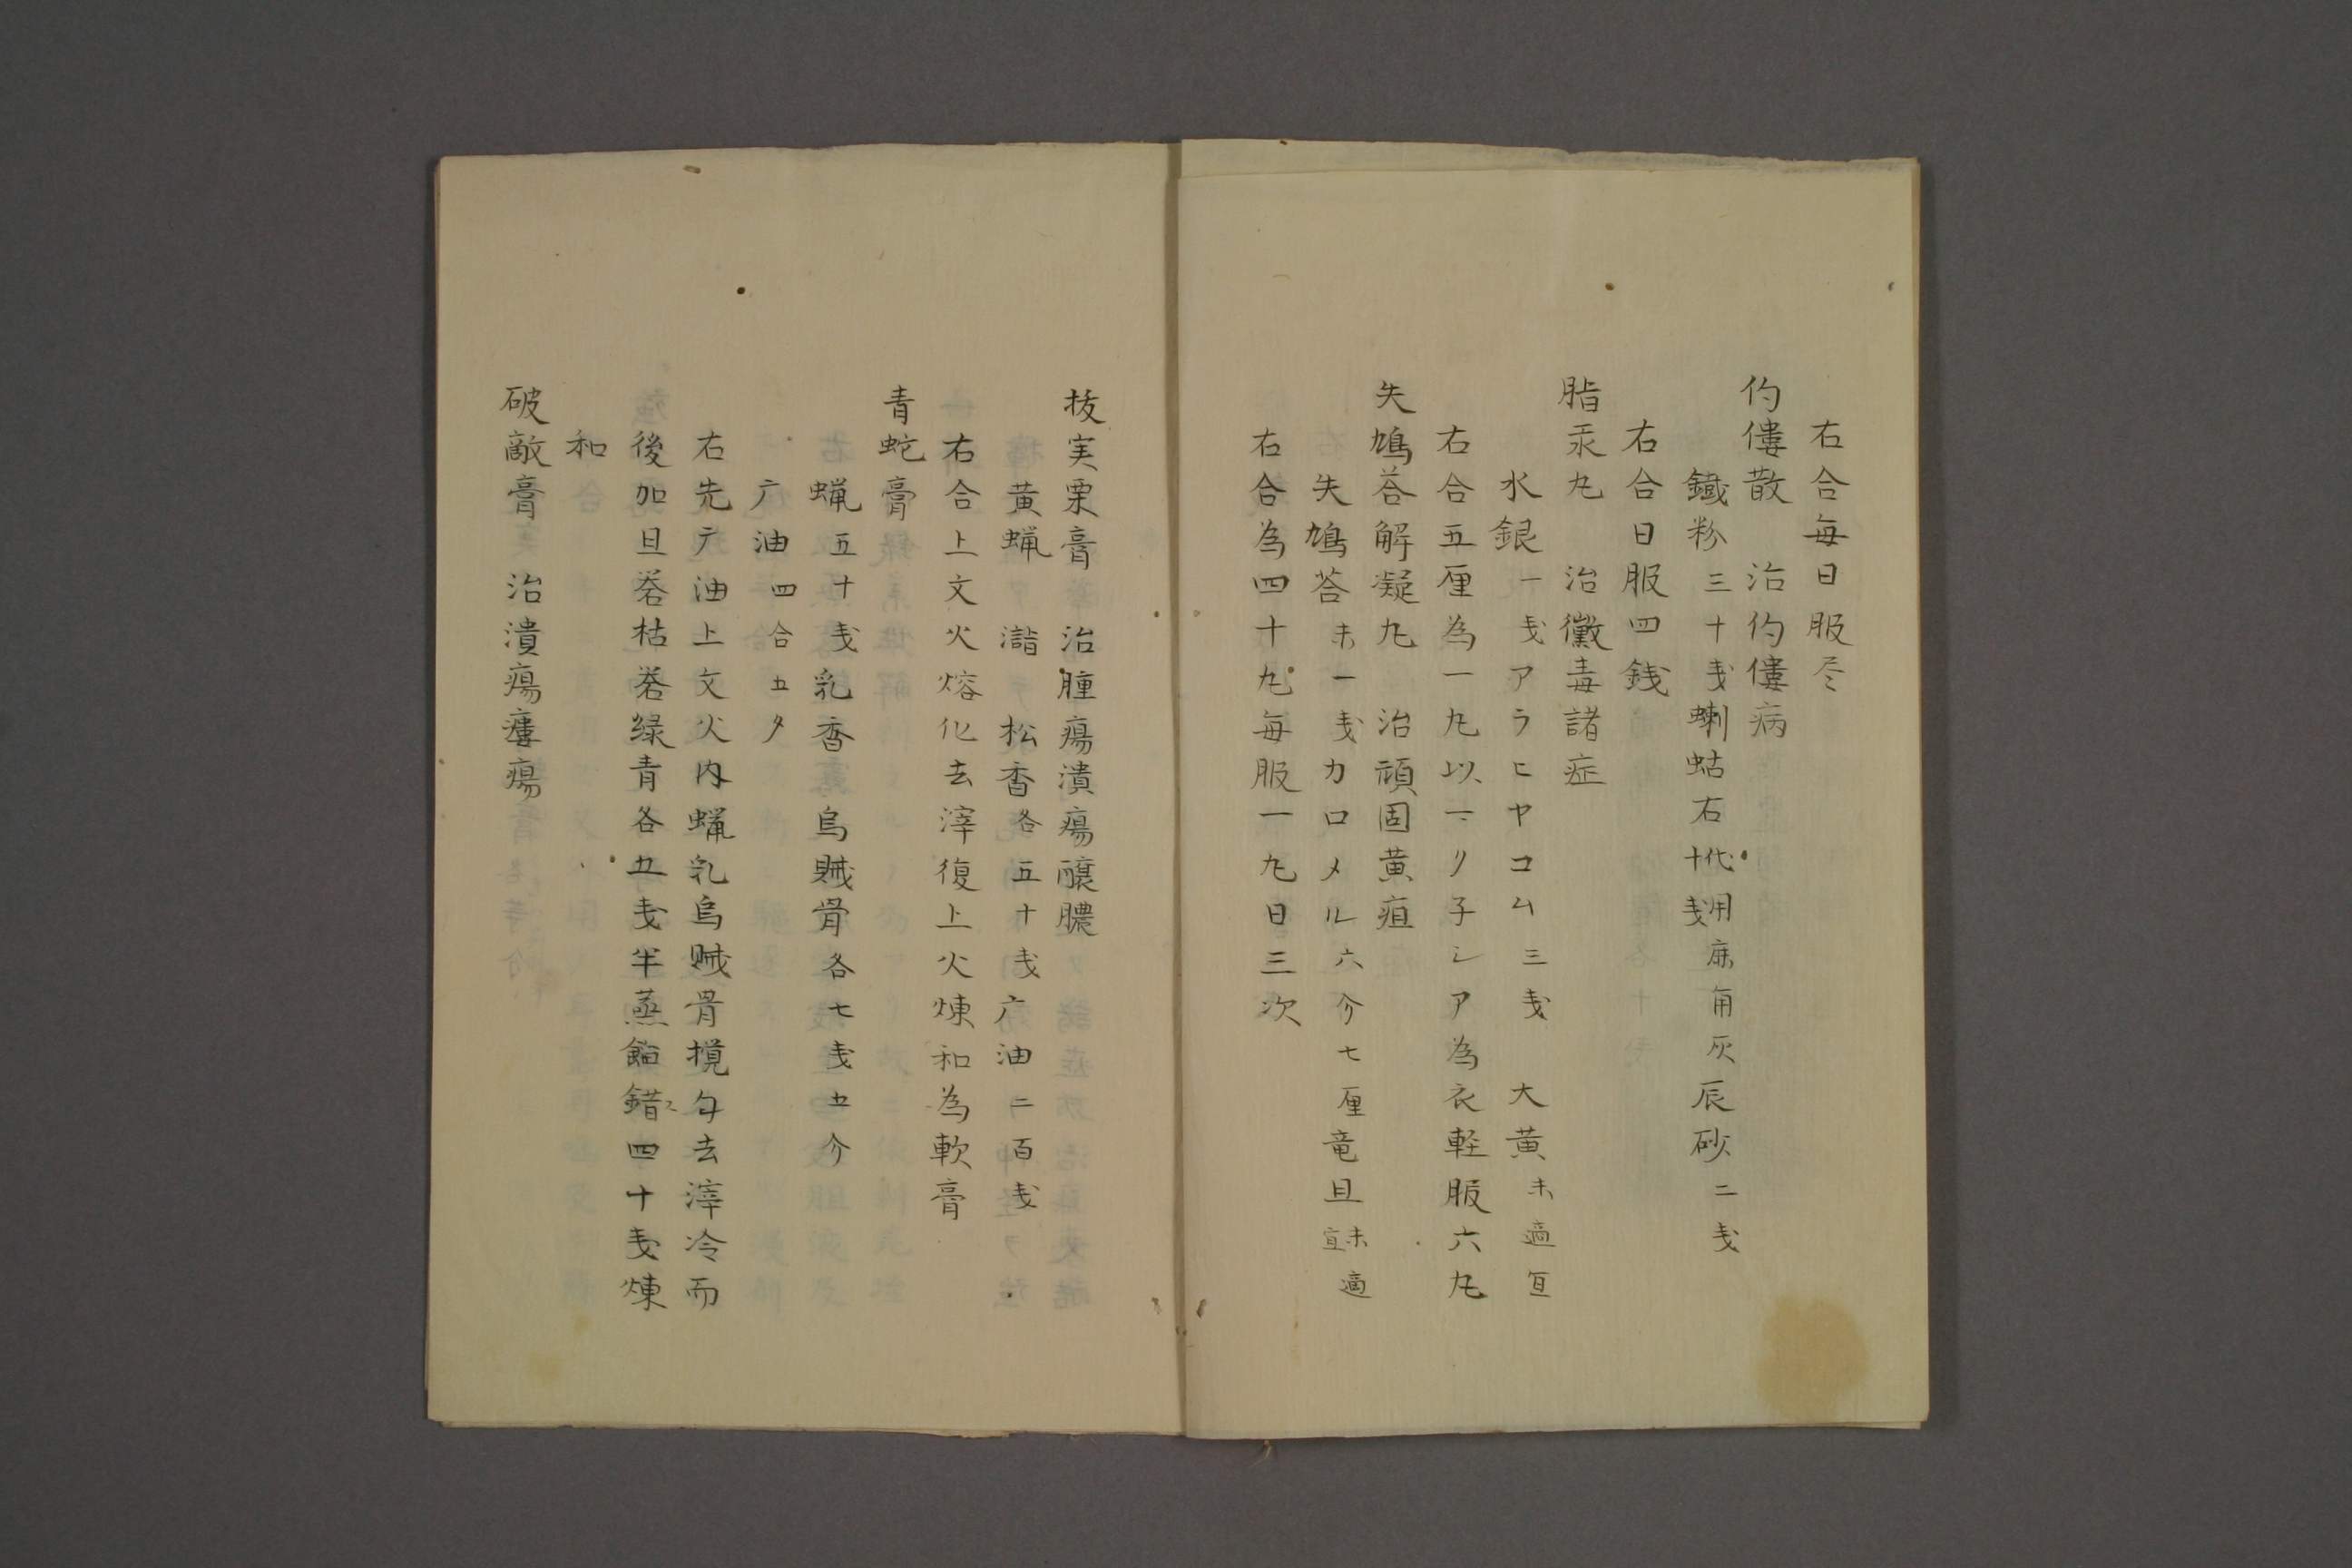 右合毎日服尽
佝僂散　治佝僂病
鐵粉三十戔蝲蛄石十戔代用麻角灰辰砂二戔
右合日服四銭
脂汞丸　治黴毒諸症
水銀一戔アラヒヤコム三戔　大黄末適宜
右合五厘為一丸以マリ子シア為衣軽服六丸
失鳩荅解凝丸　治頑固黄疸
失鳩荅末一戔カロメル六分七厘竜旦末適宜
右合為四十丸毎服一丸日三次
抜実栗膏　治腫瘍潰瘍醸膿
黄蝋　瀡　松香各五十戔广油二百戔
右合上文火熔化去滓復上火煉和為軟膏
青蛇膏
蝋五十戔乳香　烏賊骨各七戔五分
广油四合五夕
右先广油上文火内蝋乳烏賊骨攪匀去滓冷而
後加旦礬枯礬緑青各五戔半蒸餾錯四十戔煉
和
破敵膏　治潰瘍瘻瘍